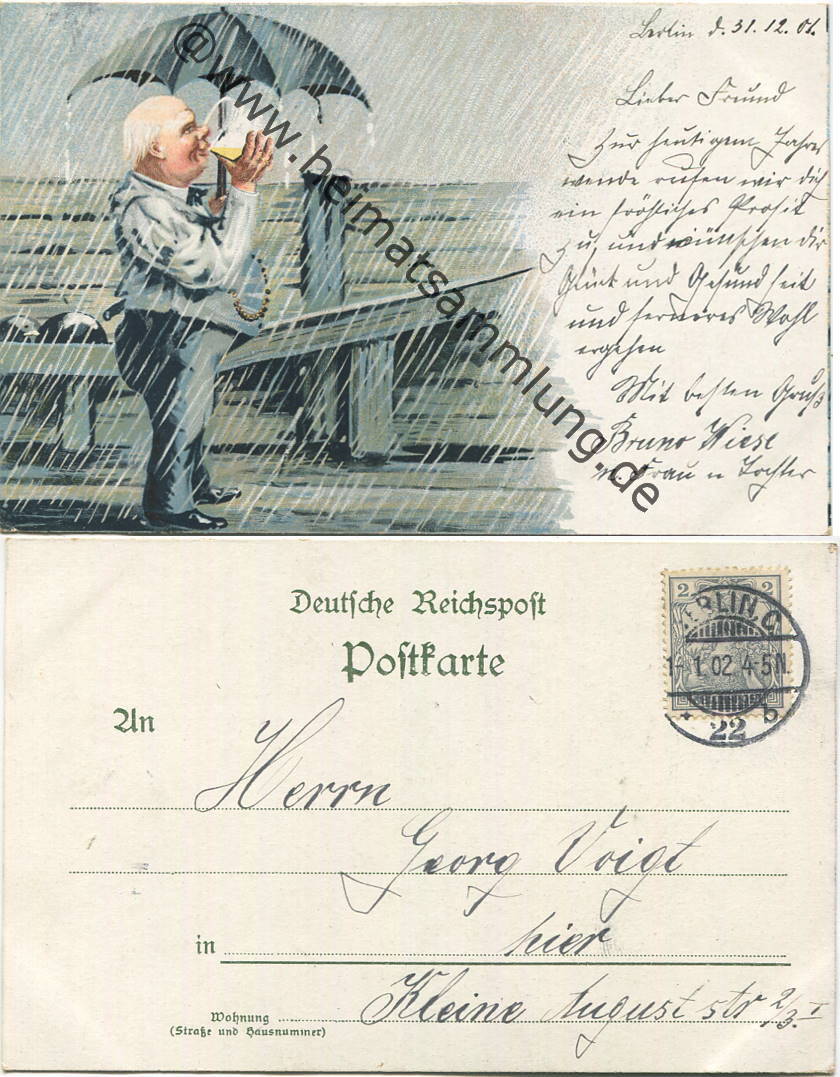 Berlin d. 31. 12. 01.
Lieber Freund
Zur heutigen Jahres
wende rufen wir dich
ein fröhliches Prosit
zu, und wünschen dir
Glück und Gesundheit
und ferneres Wohl
ergehen
Mit besten Gruß
Bruno Wiese
n. Frau u Tochter
@www.heimatsammlung.de
Deutsche Reichspost
Postkarte
2 2
BERLIN. C.
1- 1. 02 4-5 N.
* 22 b
An
Herrn
Georg Voigt
in hier
Wohnung
(Straße und Hausnummer)
Kleine August str 2/3. I